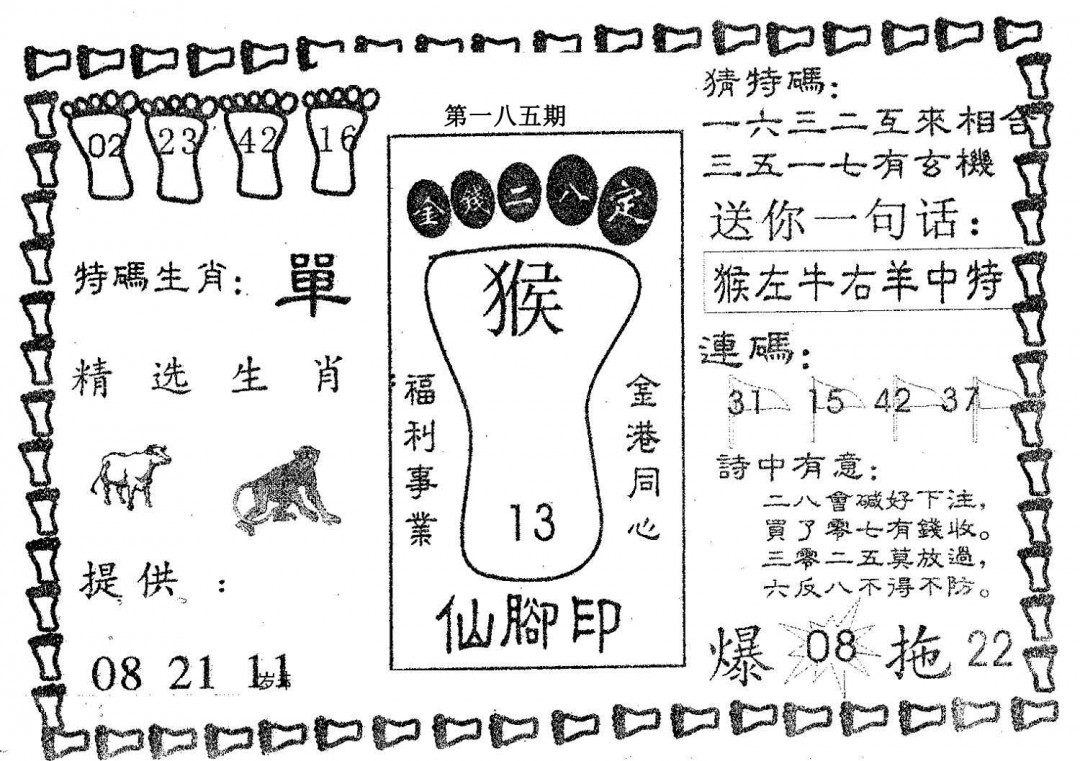 02 23 42 16
特碼生肖：單
精选生肖
提供：
08 21 11
第一八五期
金錢二八定
猴
福利事業
金港同心
13
仙腳印
猜特碼：
一六三二互來相合
三五一七有玄機
送你一句话：
猴左牛右羊中特
連碼：
31 15 42 37
詩中有意：
二八會碱好下注，
買了零七有錢收。
三零二五莫放過，
六反八不得不防。
爆 08 拖 22